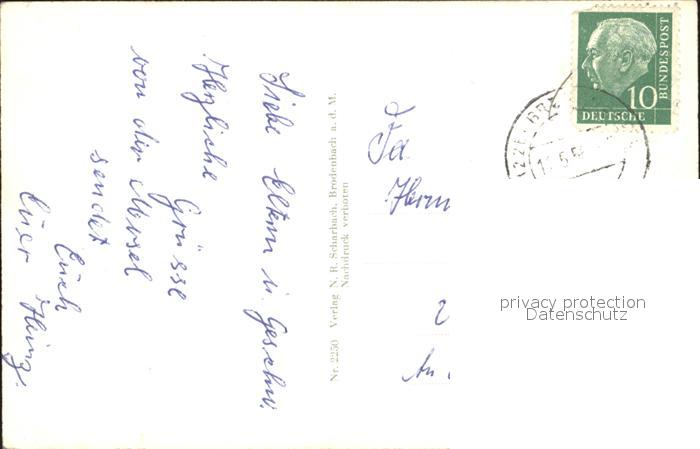 Liebe Eltern u. Geschw.
Herzliche Grüsse
von der Mosel
sendet
Euch
Euer Heinz.
Nr. 2250 Verlag N. R. Scharbach, Brodenbach a. d. M.
Nachdruck verboten
Fa
Herrn
An
10
DEUTSCHE
BUNDESPOST
privacy protection
Datenschutz